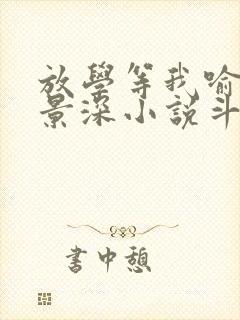 放學等我喻
景深小說斗
書中憩